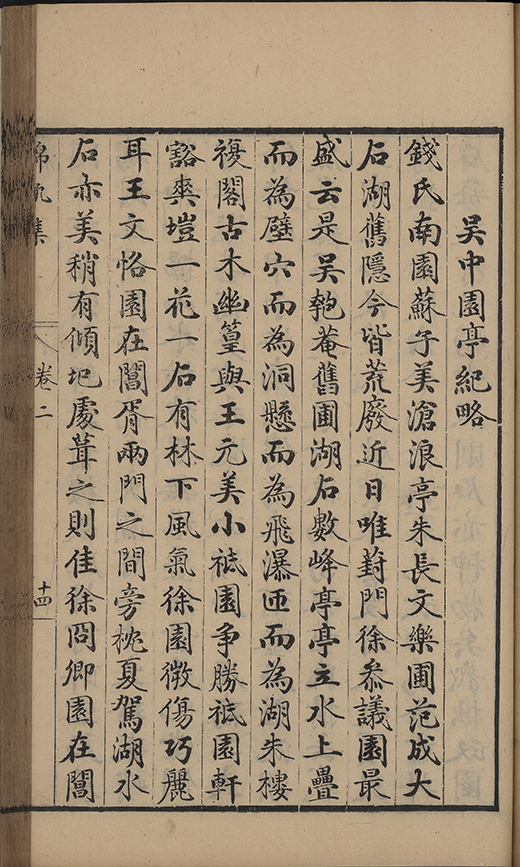 吳中園亭紀略
錢氏南園蘇子美滄浪亭朱長文樂圃范成大
石湖舊隱今皆荒廢近日唯葑門徐叅議園最
盛云是吴匏菴舊圃湖石數峰亭亭立水上疊
而為壁穴而為洞懸而為飛瀑匝而為湖朱樓
複閣古木幽篁與王元美小袛園爭勝袛園軒
豁爽塏一花一石有林下風氣徐園微傷巧麗
耳王文恪園在閶胥兩門之間旁枕夏駕湖水
石亦美稍有傾圯處葺之則佳徐冏卿園在閶
錦帆集
卷二
十四